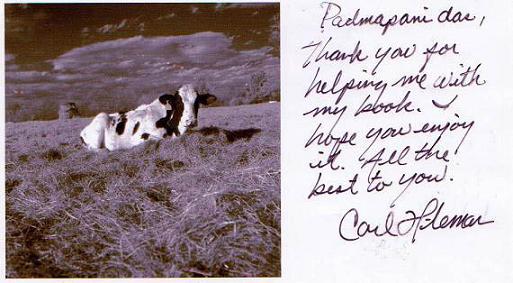 Padmapani das,
Thank you for
helping me with
my book. I
hope you enjoy
it. All the
best to you.
Carl